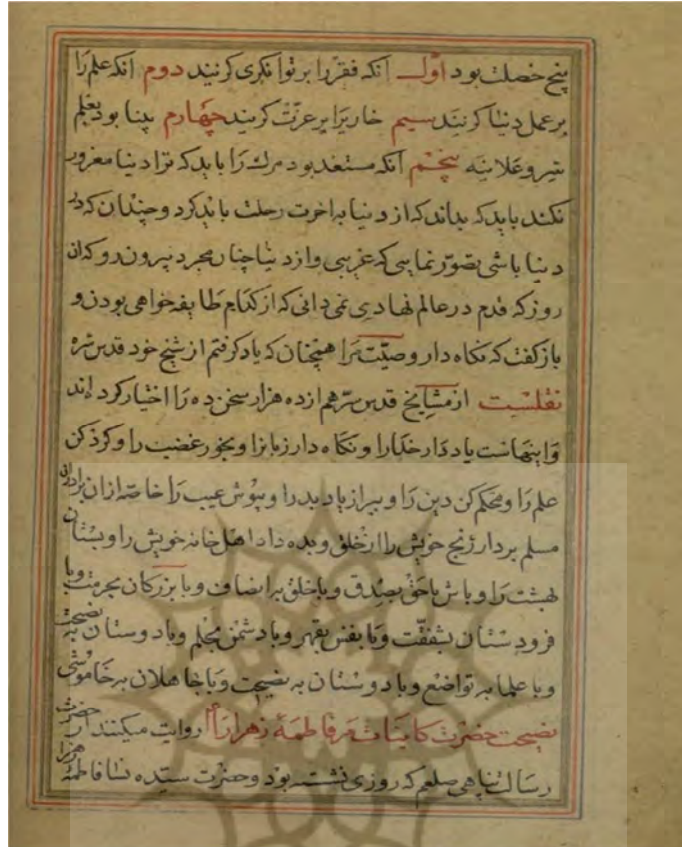 پنج خصلت بود اوّل انکه فقر را بر توانکری کزنیند دوم انکه علم را
بر عمل دنیا کزنیند سیم خاریرا بر عزّت کزنیند چهارم بینا بود بعلم
سر و علانیه پنجم انکه مستعد بود مرك را باید که ترا دنیا مغرور
نکند باید که بداند که از دنیا به اخرت رحلت باید کرد و چندان که در
دنیا باشی تصوّر نمایی که غریبی و از دنیا چنان مجرد بیرون رو که ان
روز که قدم در عالم نهادی نمی دانی که از کدام طایفه خواهی بودن و
باز کفت که نکاه دار وصیّت مرا همچنان که یاد کرفتم از شیخ خود قدس سره
نقلست از مشایخ قدس سرّهم از ده هزار سخن ده را اختیار کرده اند
و اینهاست یاد دار خدایرا و نکاه دار زبانرا و بخور غضب را و کرد کن
علم را و محکم کن دین را و ببر از یاد بد را و بپوش عیب را خاصه ازان برادران
مسلم بردار رنج خویش را از خلق و بده داد اهل خانه خویش را و بستان
بهشت را و باش با حق بصدق و با خلق به انصاف و با بزرکان بحرمت و با
فرودستان بشفقّت و با نفس بقهر و با دشمن بحلم و با دوستان به نصیحت
و با علما به تواضع و با دوستان به نصیحت و با جاهلان به خاموشی
نصیحت حضرت کاینات مر فاطمهٔ زهرا را روایت میکنند از حضرت
رسالت پناهی صلعم که روزی نشسته بود و حضرت سیّده نسا فاطمهٔ زهرا